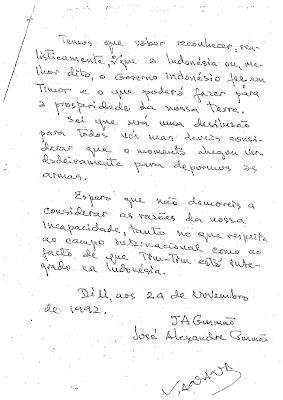 Temos que saber reconhecer, rea-
listicamente, o que a Indonésia ou, me-
lhor dito, o Governo indonésio fez em
Timor e o que poderá fazer para
a prosperidade da nossa terra.
Sei que será uma desilusão
para todos vós mas deveis consi-
derar que o momento chegou ver-
dadeiramente para depormos as
armas.
Espero que não demoreis a
considerar as razões da nossa
incapacidade, tanto no que respeita
ao campo internacional como ao
facto de que Tim-Tim está inte-
grado na Indonésia.
Dili, aos 24 de Novembro
de 1992.
JAGusmão
José Alexandre Gusmão